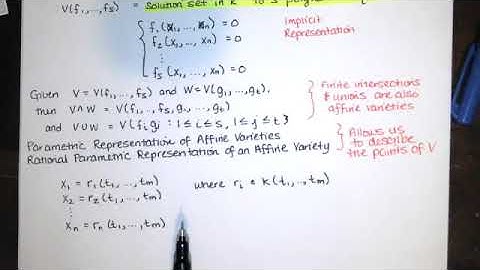 V(f₁,...,fₛ) = Solution set in kⁿ to s polyn
f₁(x₁,...,xₙ) = 0
f₂(x₁,...,xₙ) = 0
⋮
fₛ(x₁,...,xₙ) = 0
Implicit
Representation
Given V = V(f₁,...,fₛ) and W = V(g₁,...,gₜ),
then V∩W = V(f₁,..,fₛ,g₁,...,gₜ)
and V∪W = V{fᵢgⱼ : 1≤i≤s, 1≤j≤t}
Finite intersections
& unions are also
affine varieties
Parametric Representation of Affine Varieties
Rational Parametric Representation of an Affine Variety
Allows us
to describe
the points of V
x₁ = r₁(t₁,...,tₘ) where rᵢ ∈ k(t₁,..,tₘ)
x₂ = r₂(t₁,...,tₘ)
⋮
xₙ = rₙ(t₁,...,tₘ)